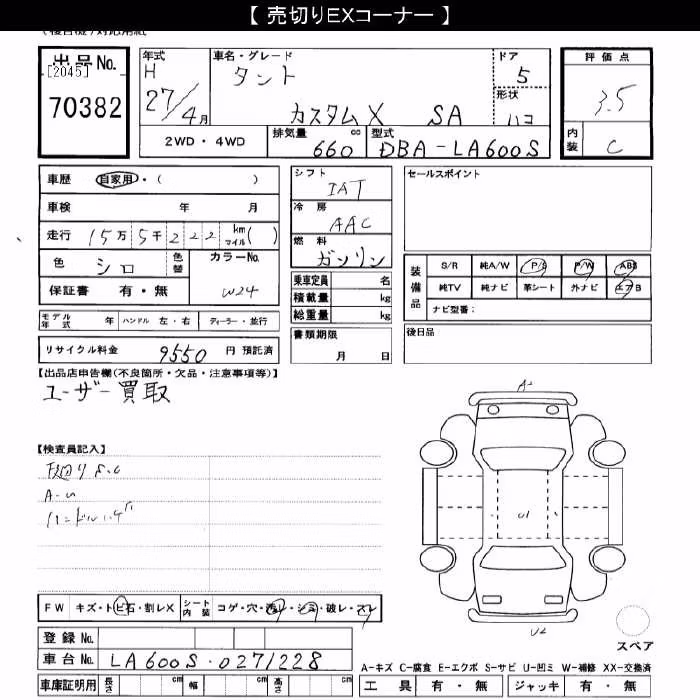 【 売切りEXコーナー 】
出品No.
[2045]
70382
年式
H
27/4月
車名・グレード
タント
カスタムX SA
ドア
5
形状
ハコ
評価点
3.5
内装
C
2WD・4WD
排気量 cc
660
型式
DBA-LA600S
車歴 自家用・( )
車検 年 月
走行 15万5千222 km マイル( )
色 シロ 色替 カラーNo.
W24
保証書 有・無
モデル年式 年 ハンドル 左・右 ディーラー・並行
リサイクル料金 9550 円 預託済
シフト
IAT
冷房
AAC
燃料
ガソリン
乗車定員 名
積載量 kg
総重量 kg
書類期限
月 日
セールスポイント
装備品
S/R 純A/W P/S P/W ABS
純TV 純ナビ 革シート 外ナビ エアB
ナビ型番:
後日品
【出品店申告欄(不良箇所・欠品・注意事項等)】
ユーザー買取
【検査員記入】
A
U1
U2
スペア
FW キズ・トビ石・割レX シート内装 コゲ・穴・汚レ・シミ・破レ・スレ
登録No.
車台No. LA600S-0271228
車庫証明用 長さ cm 幅 cm 高さ cm
A-キズ C-腐食 E-エクボ S-サビ U-凹ミ W-補修 XX-交換済
工具 有・無 ジャッキ 有・無